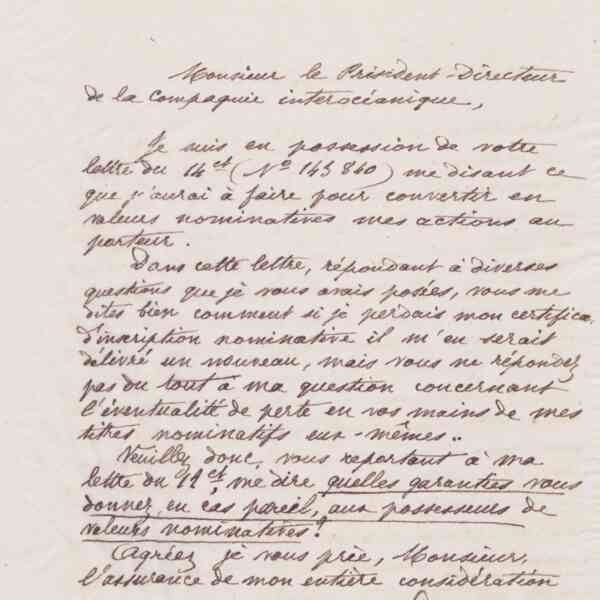 Monsieur le Président-Directeur
de la Compagnie interocéanique,
Je suis en possession de votre
lettre du 14 ct (No 143 840) me disant ce
que j'aurai à faire pour convertir en
valeurs nominatives mes actions au
porteur.
Dans cette lettre, répondant à diverses
questions que je vous avais posées, vous me
dites bien comment si je perdais mon certifica
d'inscription nominative il m'en serait
délivré un nouveau, mais vous ne répondez
pas du tout à ma question concernant
l'éventualité de perte en vos mains de mes
titres nominatifs eux-mêmes..
Veuillez donc, vous reportant à ma
lettre du 11 ct, me dire quelles garanties vous
donnez, en cas pareil, aux possesseurs de
valeurs nominatives?
Agréez je vous prie, Monsieur,
l'assurance de mon entière considération